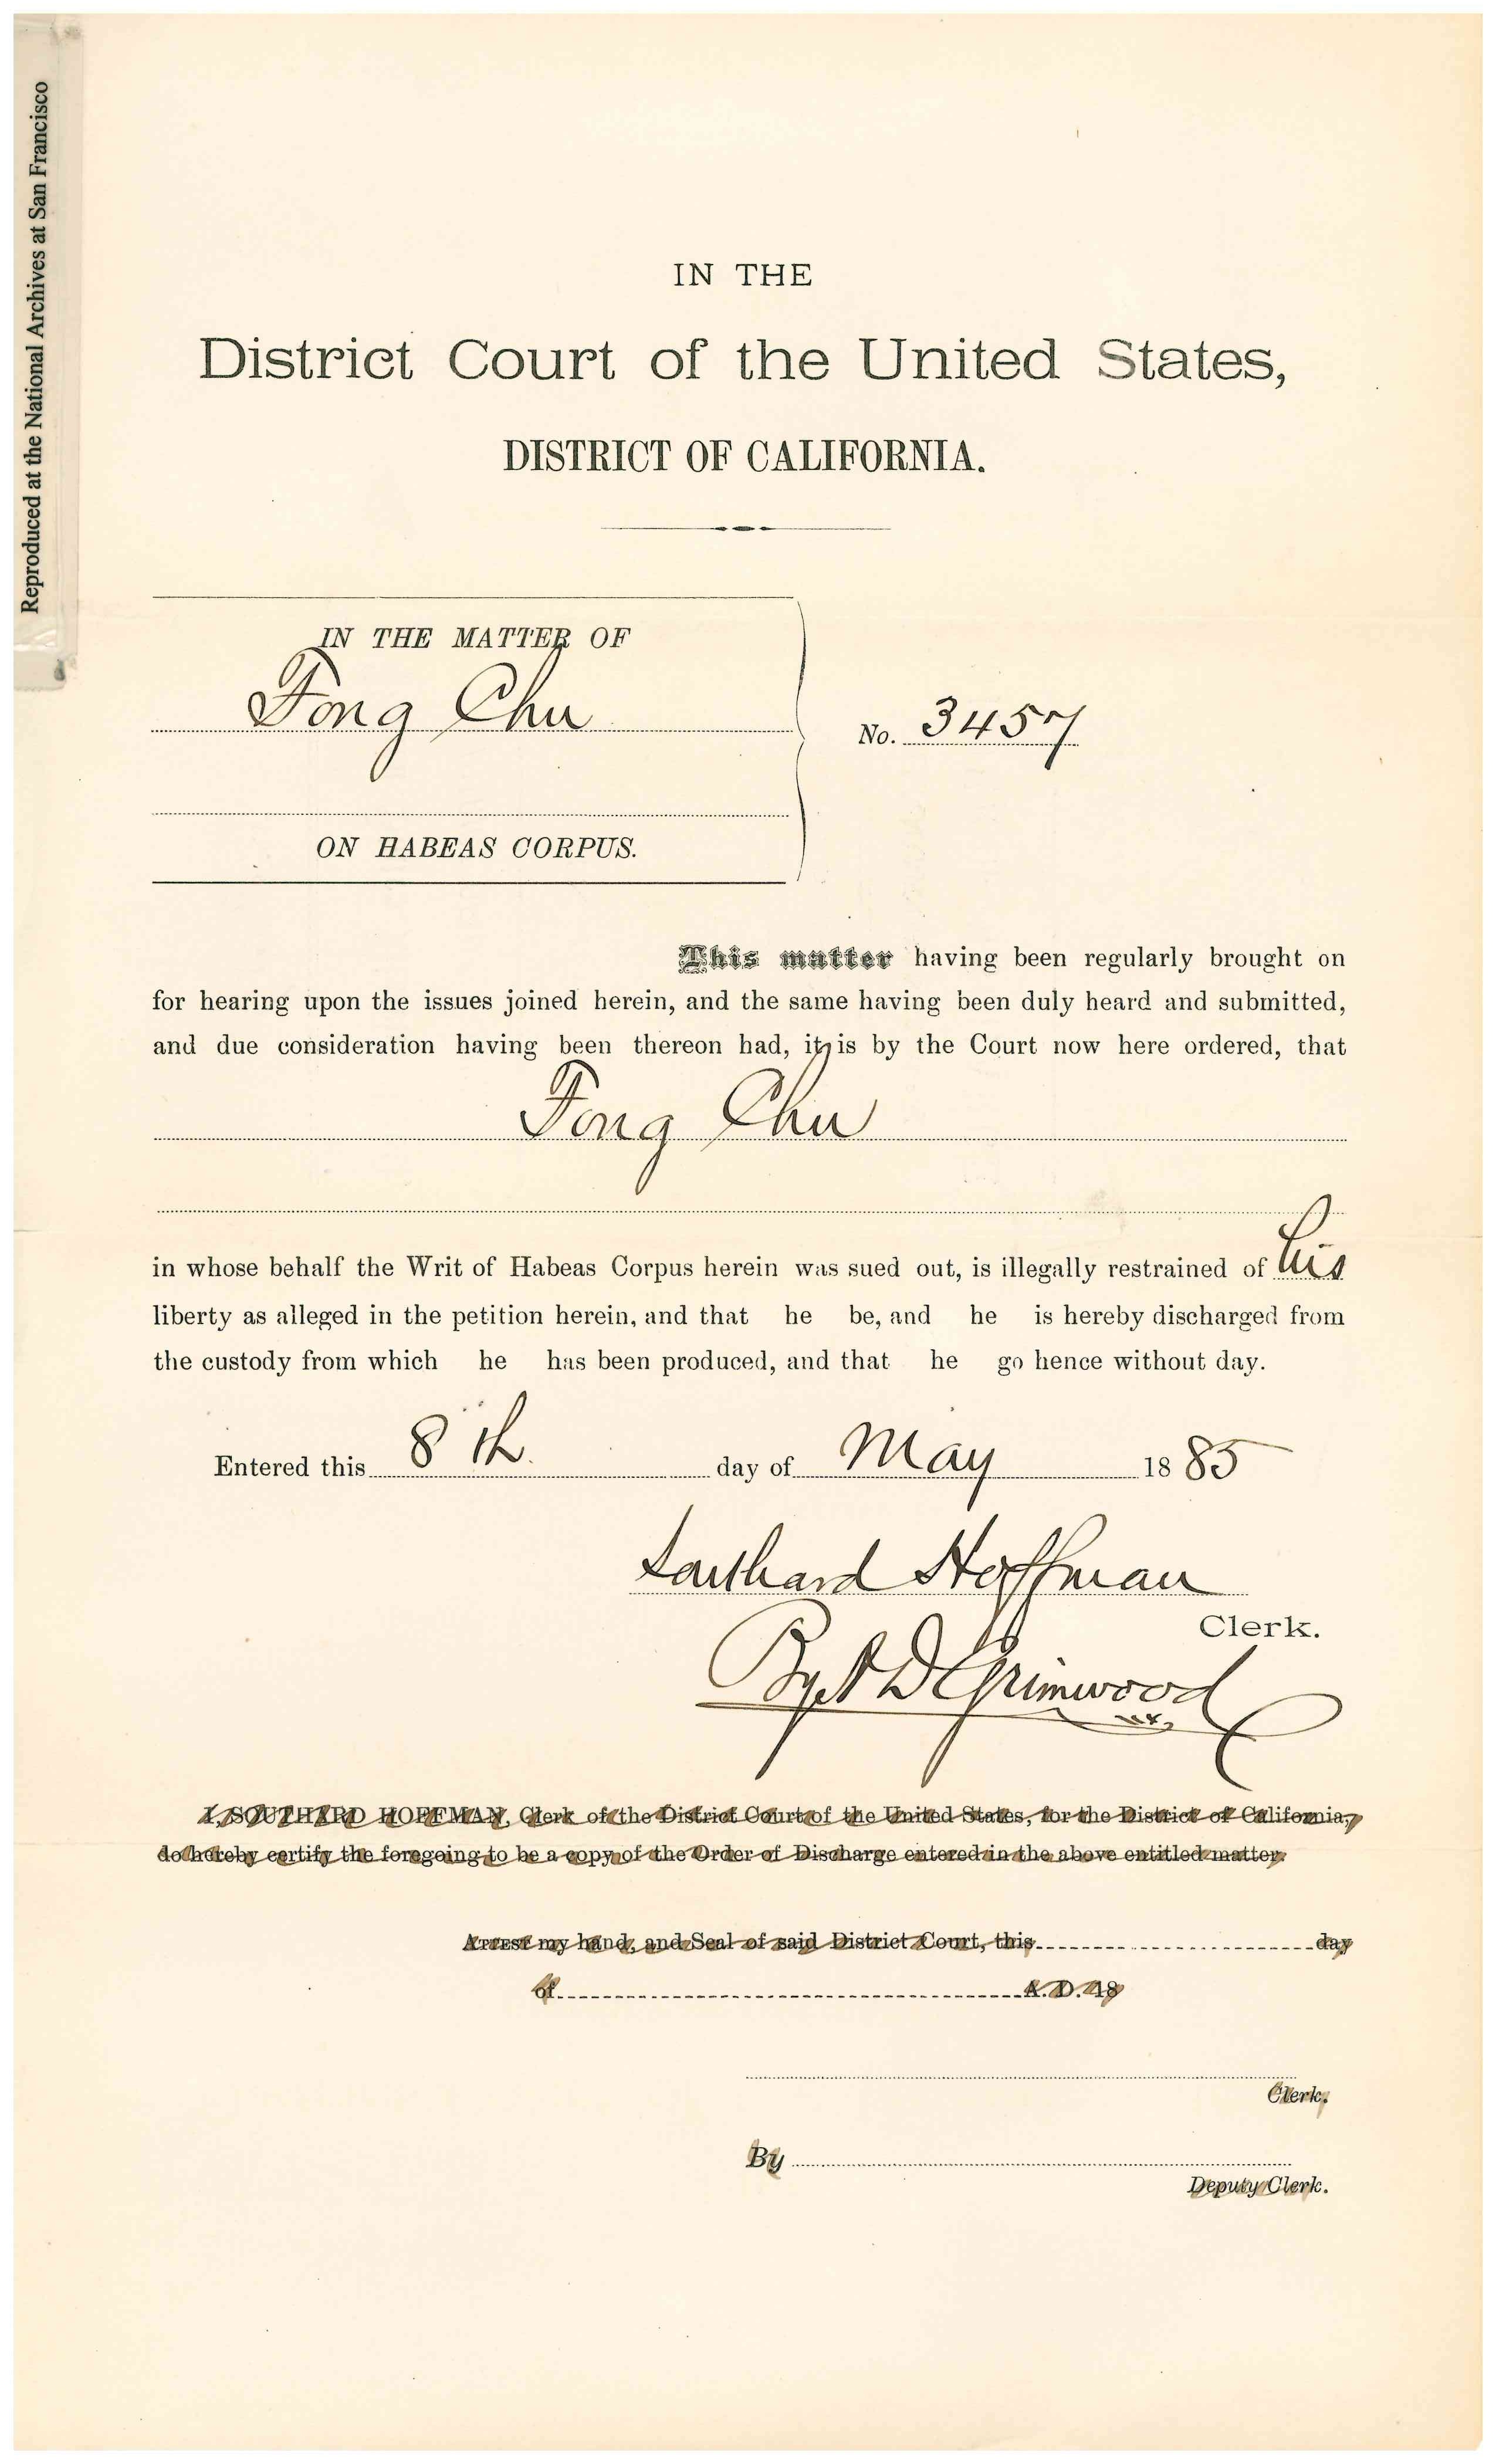 Reproduced at the National Archives at San Francisco
IN THE
District Court of the United States,
DISTRICT OF CALIFORNIA.
IN THE MATTER OF
Fong Chu
No. 3457
ON HABEAS CORPUS.
This matter having been regularly brought on
for hearing upon the issues joined herein, and the same having been duly heard and submitted,
and due consideration having been thereon had, it is by the Court now here ordered, that
Fong Chu
in whose behalf the Writ of Habeas Corpus herein was sued out, is illegally restrained of his
liberty as alleged in the petition herein, and that he be, and he is hereby discharged from
the custody from which he has been produced, and that he go hence without day.
Entered this 8th day of May 1885
Southard Hoffman
Clerk.
By A D Grimwood
I, SOUTHARD HOFFMAN, Clerk of the District Court of the United States, for the District of California,
do hereby certify the foregoing to be a copy of the Order of Discharge entered in the above entitled matter.
ATTEST my hand, and Seal of said District Court, this day
of A. D. 18
Clerk.
By
Deputy Clerk.